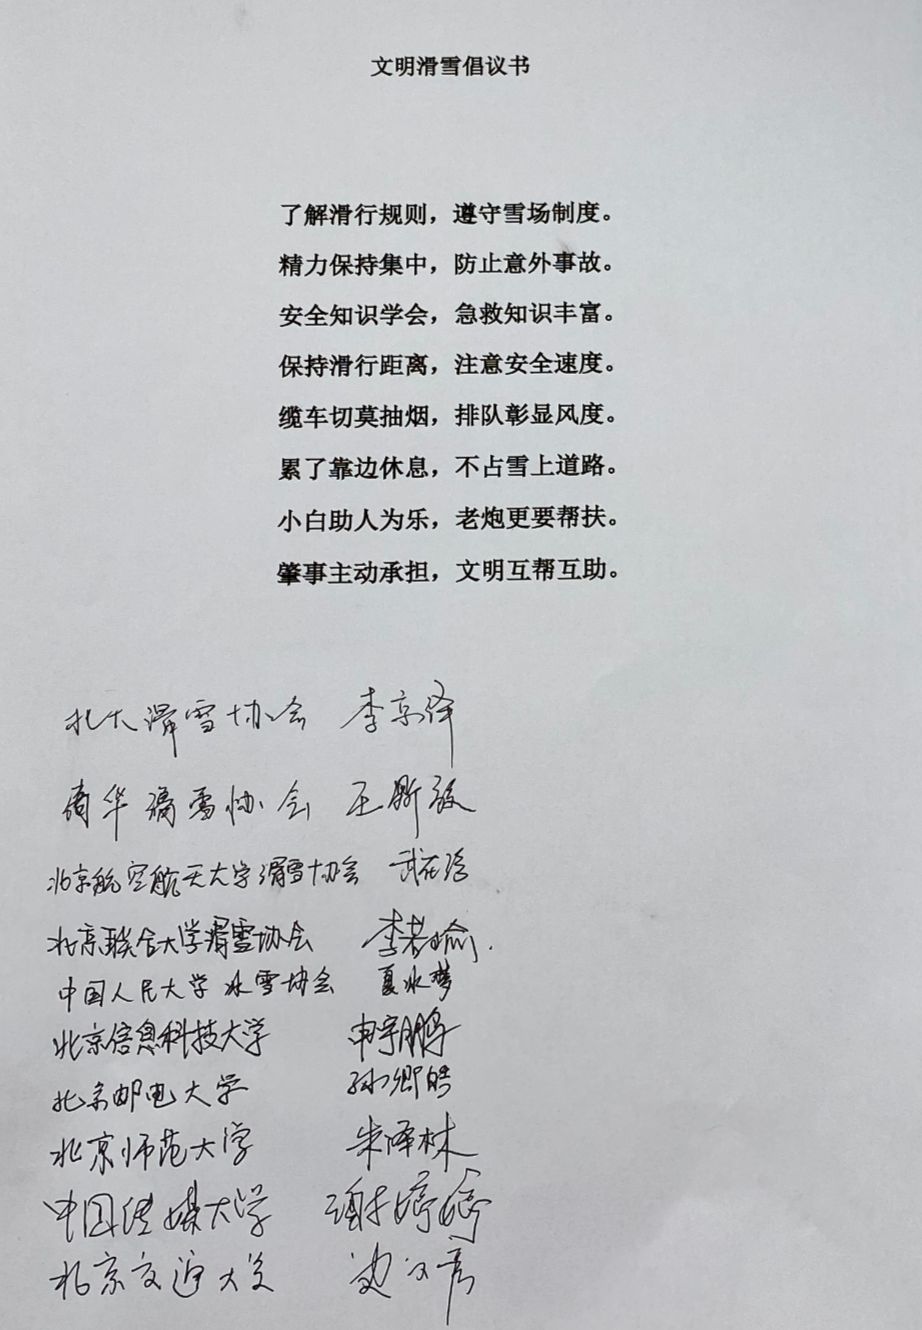 文明滑雪倡议书
了解滑行规则，遵守雪场制度。
精力保持集中，防止意外事故。
安全知识学会，急救知识丰富。
保持滑行距离，注意安全速度。
缆车切莫抽烟，排队彰显风度。
累了靠边休息，不占雪上道路。
小白助人为乐，老炮更要帮扶。
肇事主动承担，文明互帮互助。
北大滑雪协会 李京泽
清华滑雪协会 王斯敏
北京航空航天大学滑雪协会
北京联合大学滑雪协会 李若瑜
中国人民大学冰雪协会 夏冰梦
北京信息科技大学 申宇鹏
北京邮电大学 孙卿皓
北京师范大学 朱泽林
中国传媒大学 谢婷婷
北京交通大学